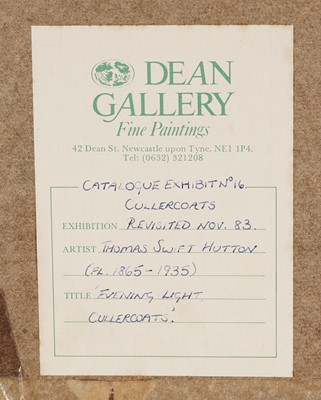 DEAN
GALLERY
Fine Paintings
42 Dean St. Newcastle upon Tyne. NE1 1P4.
Tel: (0632) 321208
CATALOGUE EXHIBIT Nº 16.
CULLERCOATS
EXHIBITION REVISITED NOV. 83.
ARTIST THOMAS SWIFT HUTTON
(FL. 1865-1935)
TITLE 'EVENING LIGHT,
CULLERCOATS'.